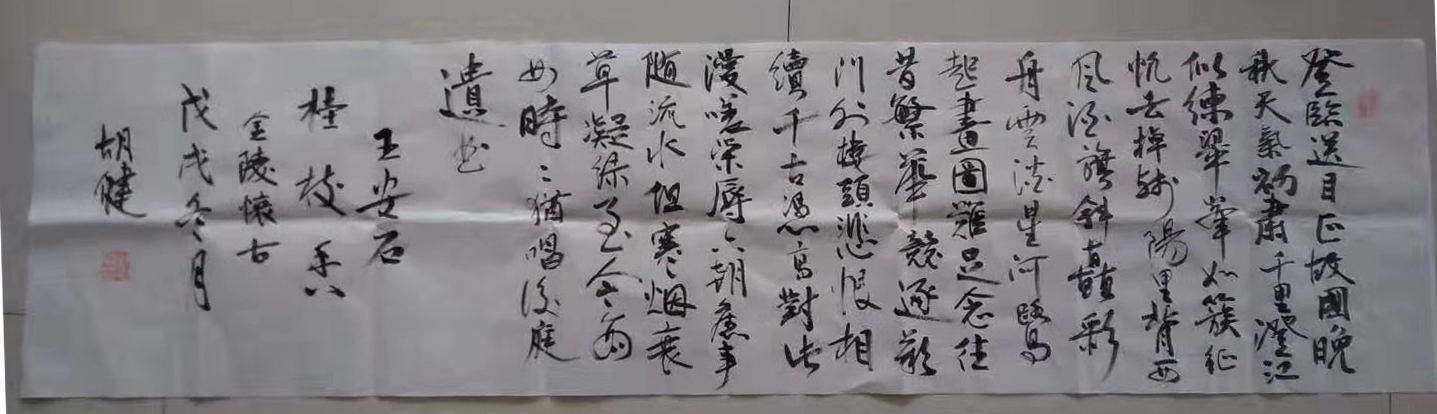 登臨送目正故國晚
秋天氣初肅千里澄江
似練翠峯如簇征
帆去棹殘陽里背西
風酒旗斜矗彩
舟雲淡星河鷺
起畫圖難足念往
昔繁華競逐歎
門外樓頭悲恨相
續千古憑高對此
漫嗟榮辱六朝舊事
随流水但寒烟衰
草凝绿至今商
女時々猶唱後庭
遺曲
王安石
桂枝香
金陵懷古
戊戌冬月
胡健